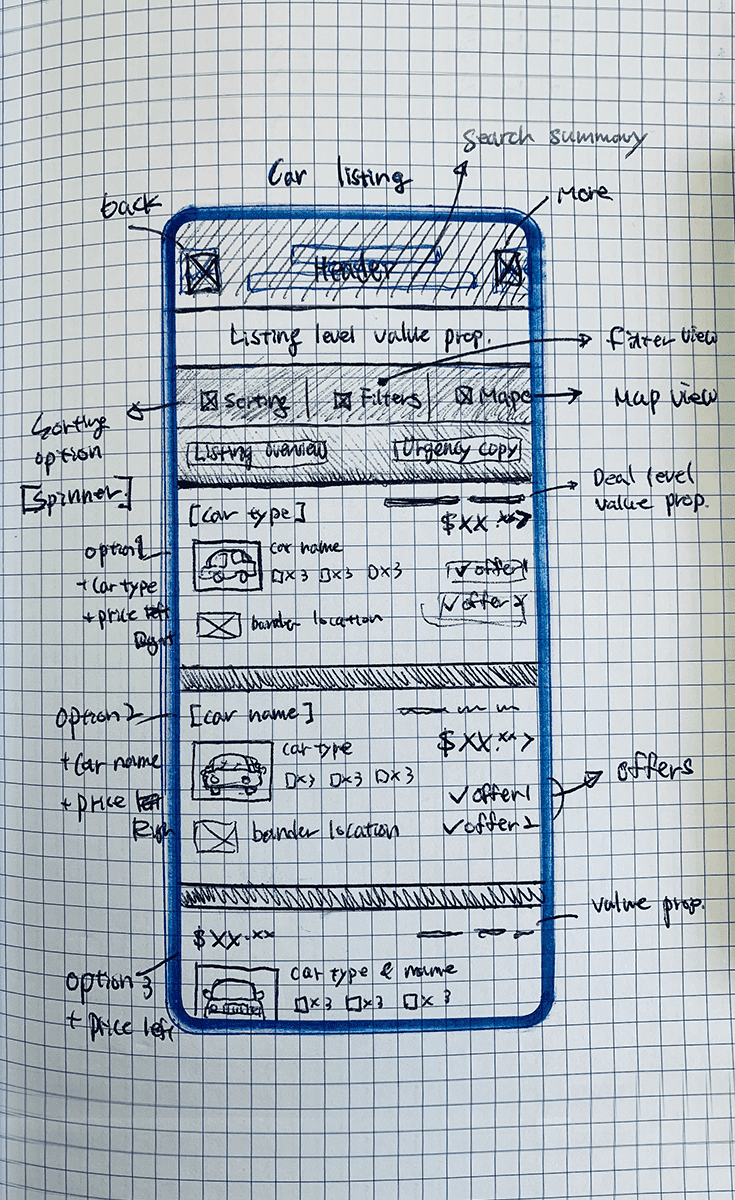 Search summary
Car listing
back
More
Header
Listing level value prop.
Filter view
Sorting
Filters
Maps
Map view
Sorting
option
[Spinner]
Listing overview
Urgency copy
Deal level
value prop.
[car type]
$XX.xx>
option1
+ car type
+ price left
Right
car name
x3 x3 x3
✓ offer1
✓ offer2
location
option2
+ car name
+ price left
Right
[car name]
$XX.xx>
car type
x3 x3 x3
offers
✓ offer1
✓ offer2
location
value prop.
$XX.xx
option 3
+ price left
car type & name
x3 x3 x3